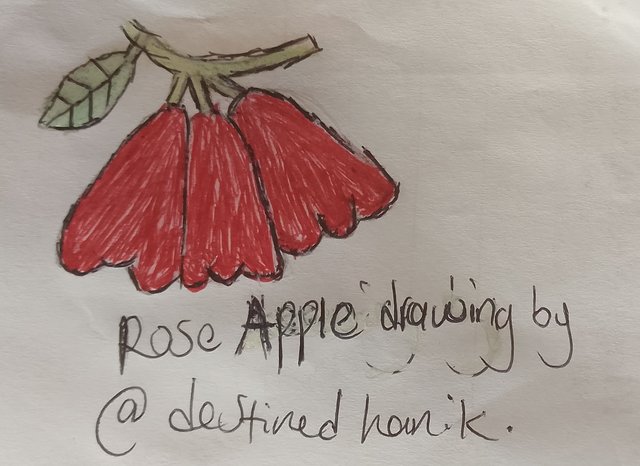 Rose Apple drawing by
@ destined hanik.